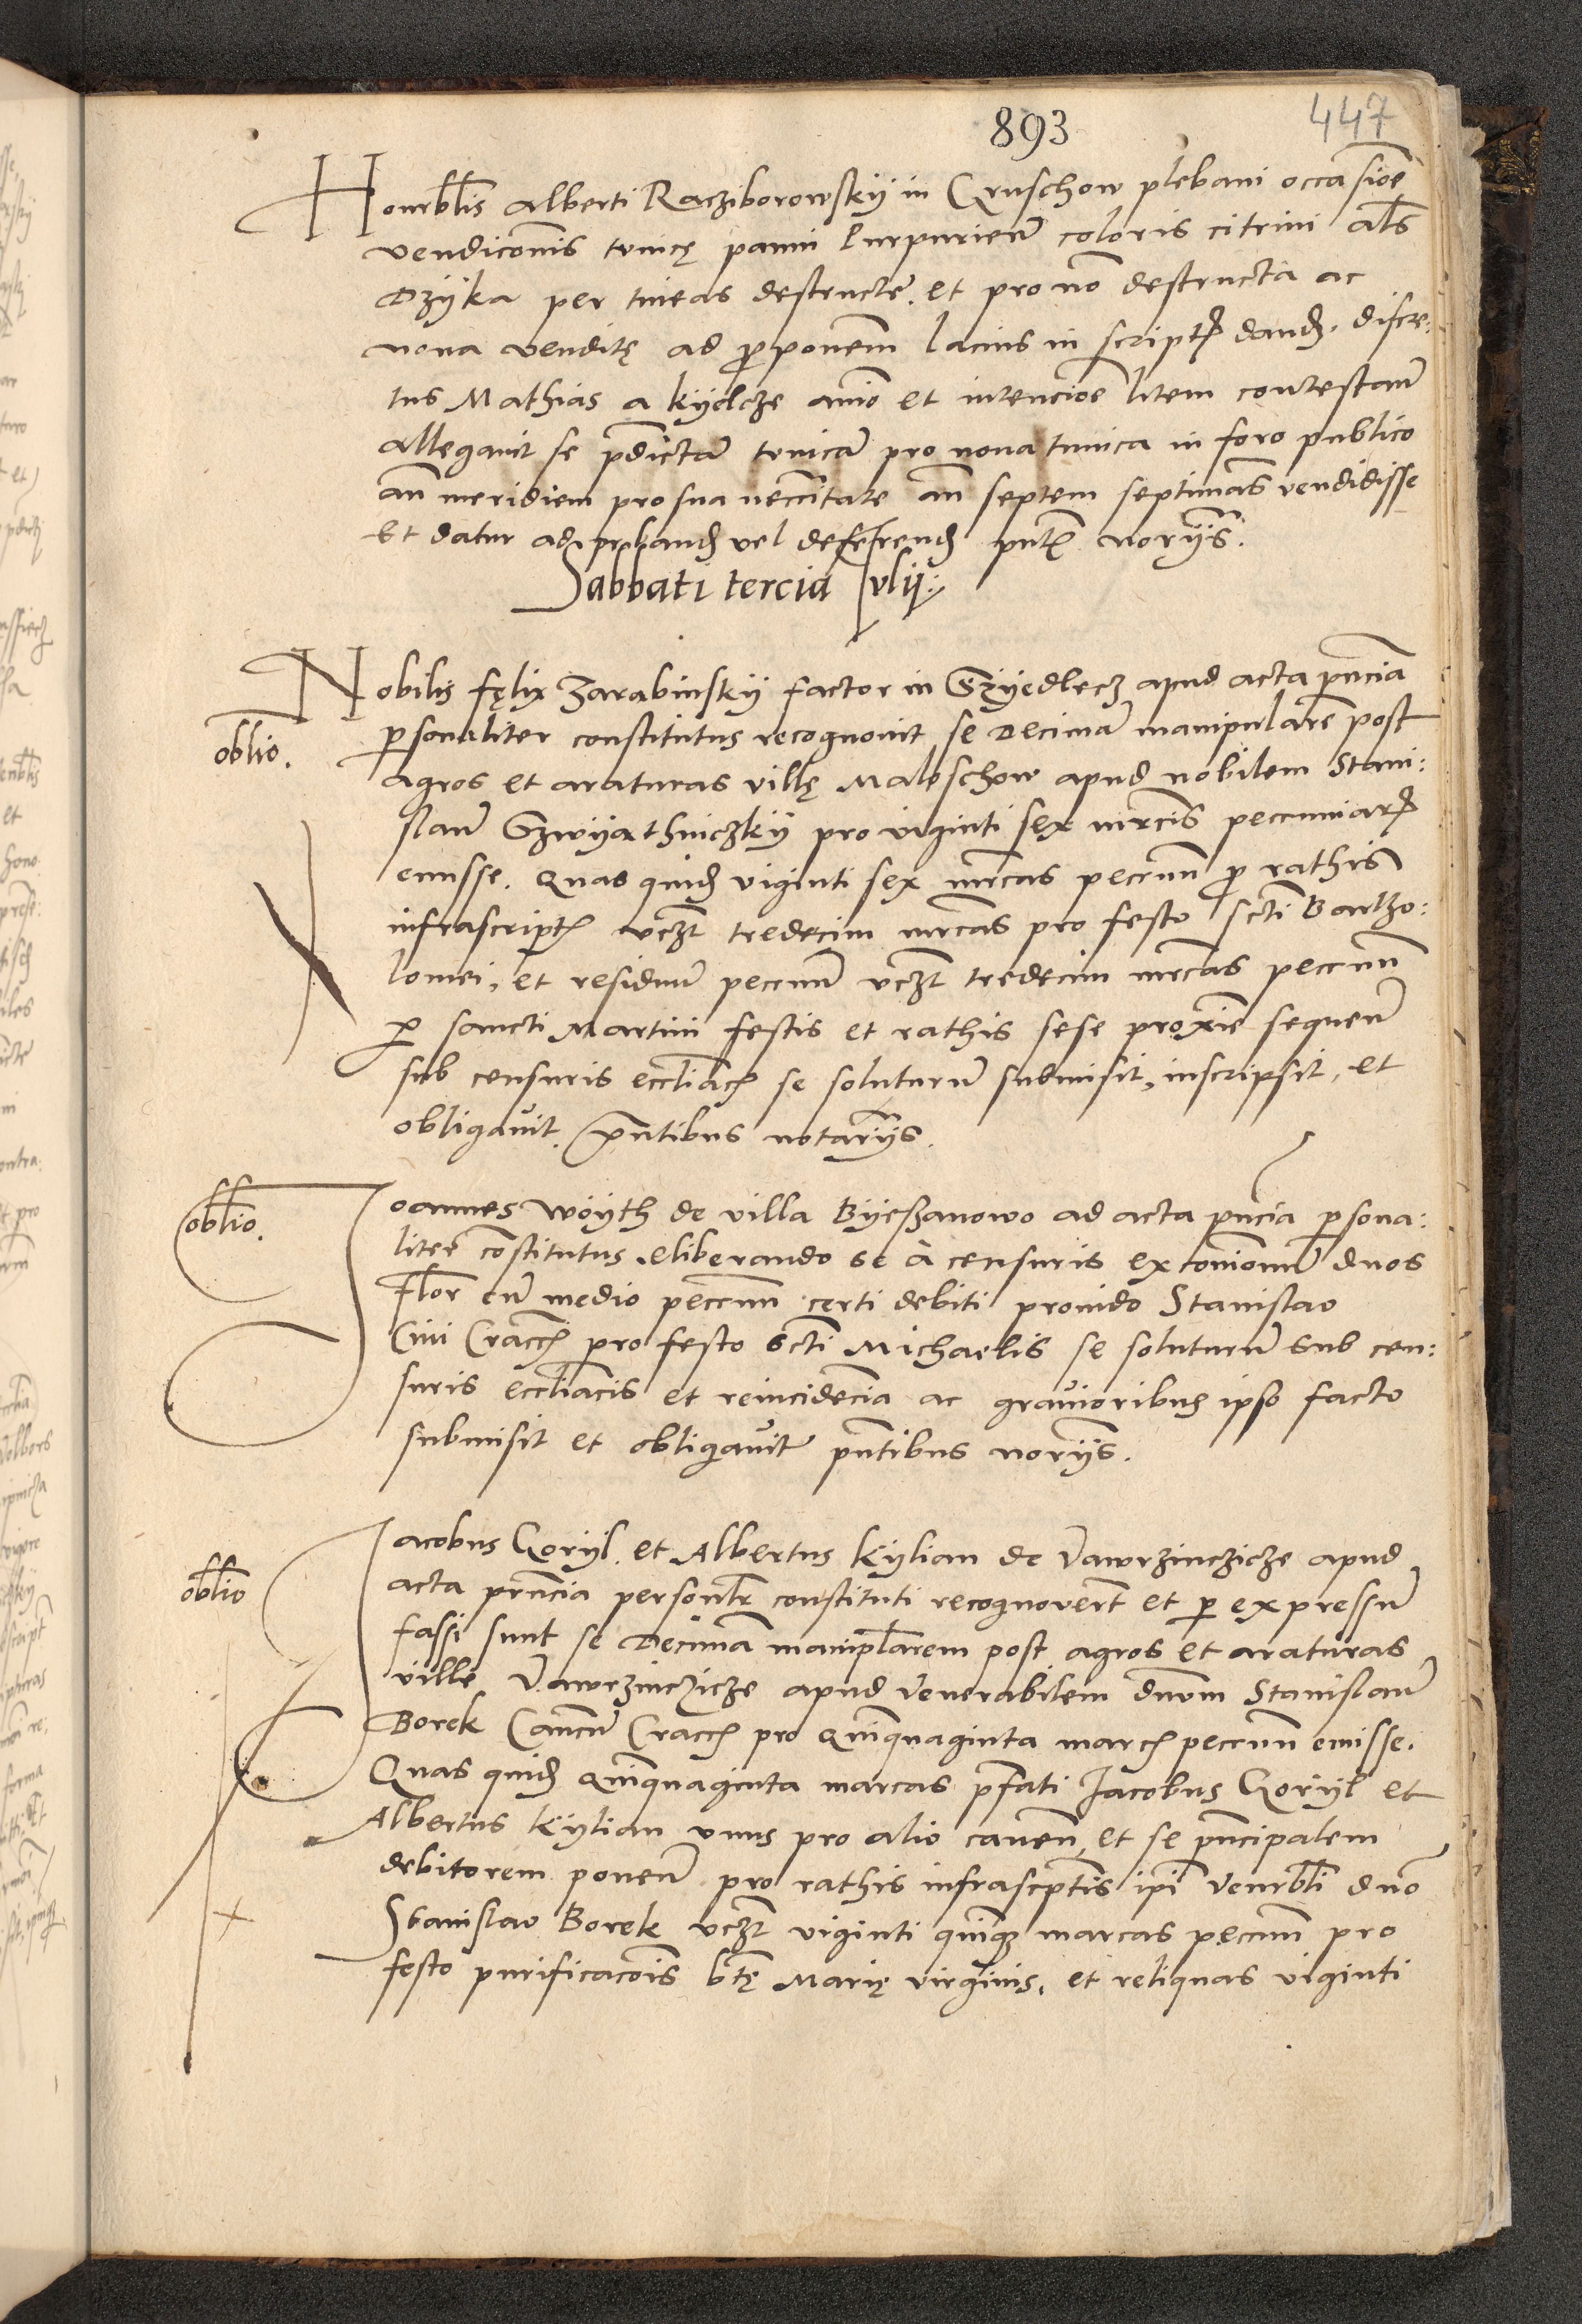 893
447
Honrblis Alberti Racziborowskÿ in Cruschow plebani occasioe
vendicoms tunicę panni Purpurieñ coloris citrini als
Dzÿka per tineas destructe. et pro no destructa ac
noua venditę ad proponem lacius in script dand. discre:
tus Mathias a Kÿelcze anio et intencioe litem contestañ
allegauit se pdictã tunicã pro noua tunica in foro publico
an meridiem pro sua neccitate an septem septimas vendidisse
Et datur ad proband vel deferend pnt norÿs.
Sabbati tercia Julÿ:
Nobilis fęlix Zarabinskÿ factor in Gzÿedlecz apud acta pncia
oblio.
personaliter constitutus recognouit se Decimã manipularẽ post
agros et araturas villę Maleschow apud nobilem Stani:
slaũ Gzwÿathniczkÿ pro viginti sex mrcis pecuniar
emisse. Quas quid viginti sex mrcas pecun p rathis
infrascript vczt tredecim mrcas pro festo scti Bartho:
lomei, et residuũ pecun vczt tredecim mrcas pecun
p sancti Martini festis et rathis sese proxie sequeñ
sub censuris eccliac se soluturũ submisit, inscripsit, et
obligauit. pntibus notarÿs.
oblio.
Joannes Woÿth de villa Bÿeßanowo ad acta pncia persona:
liter constitutus. eliberando se a censuris excomonũ duos
Flor cũ medio pecun certi debiti prouido Stanislao
Ciui Cracc pro festo scti Michaelis se soluturũ sub cen:
suris eccliacis et reincidecia ac grauioribus ipso facto
submisit et obligauit pntibus norÿs.
oblio
Jacobus Gorÿl et Albertus Kÿlian de Vawrzincziсze apud
acta prncia personlr constituti recognouert et p expressũ
fassi sunt se Decimã maniplarem post agros et araturas
ville Vawrzincziсze apud Venerabilem dnum Stanislaũ
Borek Cancũ Cracc pro quinquaginta marc pecun emisse.
Quas quid quinquaginta marcas pfati Jacobus Gorÿl et
Albertus Kÿlian vnus pro alio caueñ et se pncipalem
debitorem poneñ pro rathis infrascptis ipi Venrbli dno
Stanislao Borek vczt viginti quinq marcas pecun pro
festo purificacois btę Marię virginis, et reliquas viginti